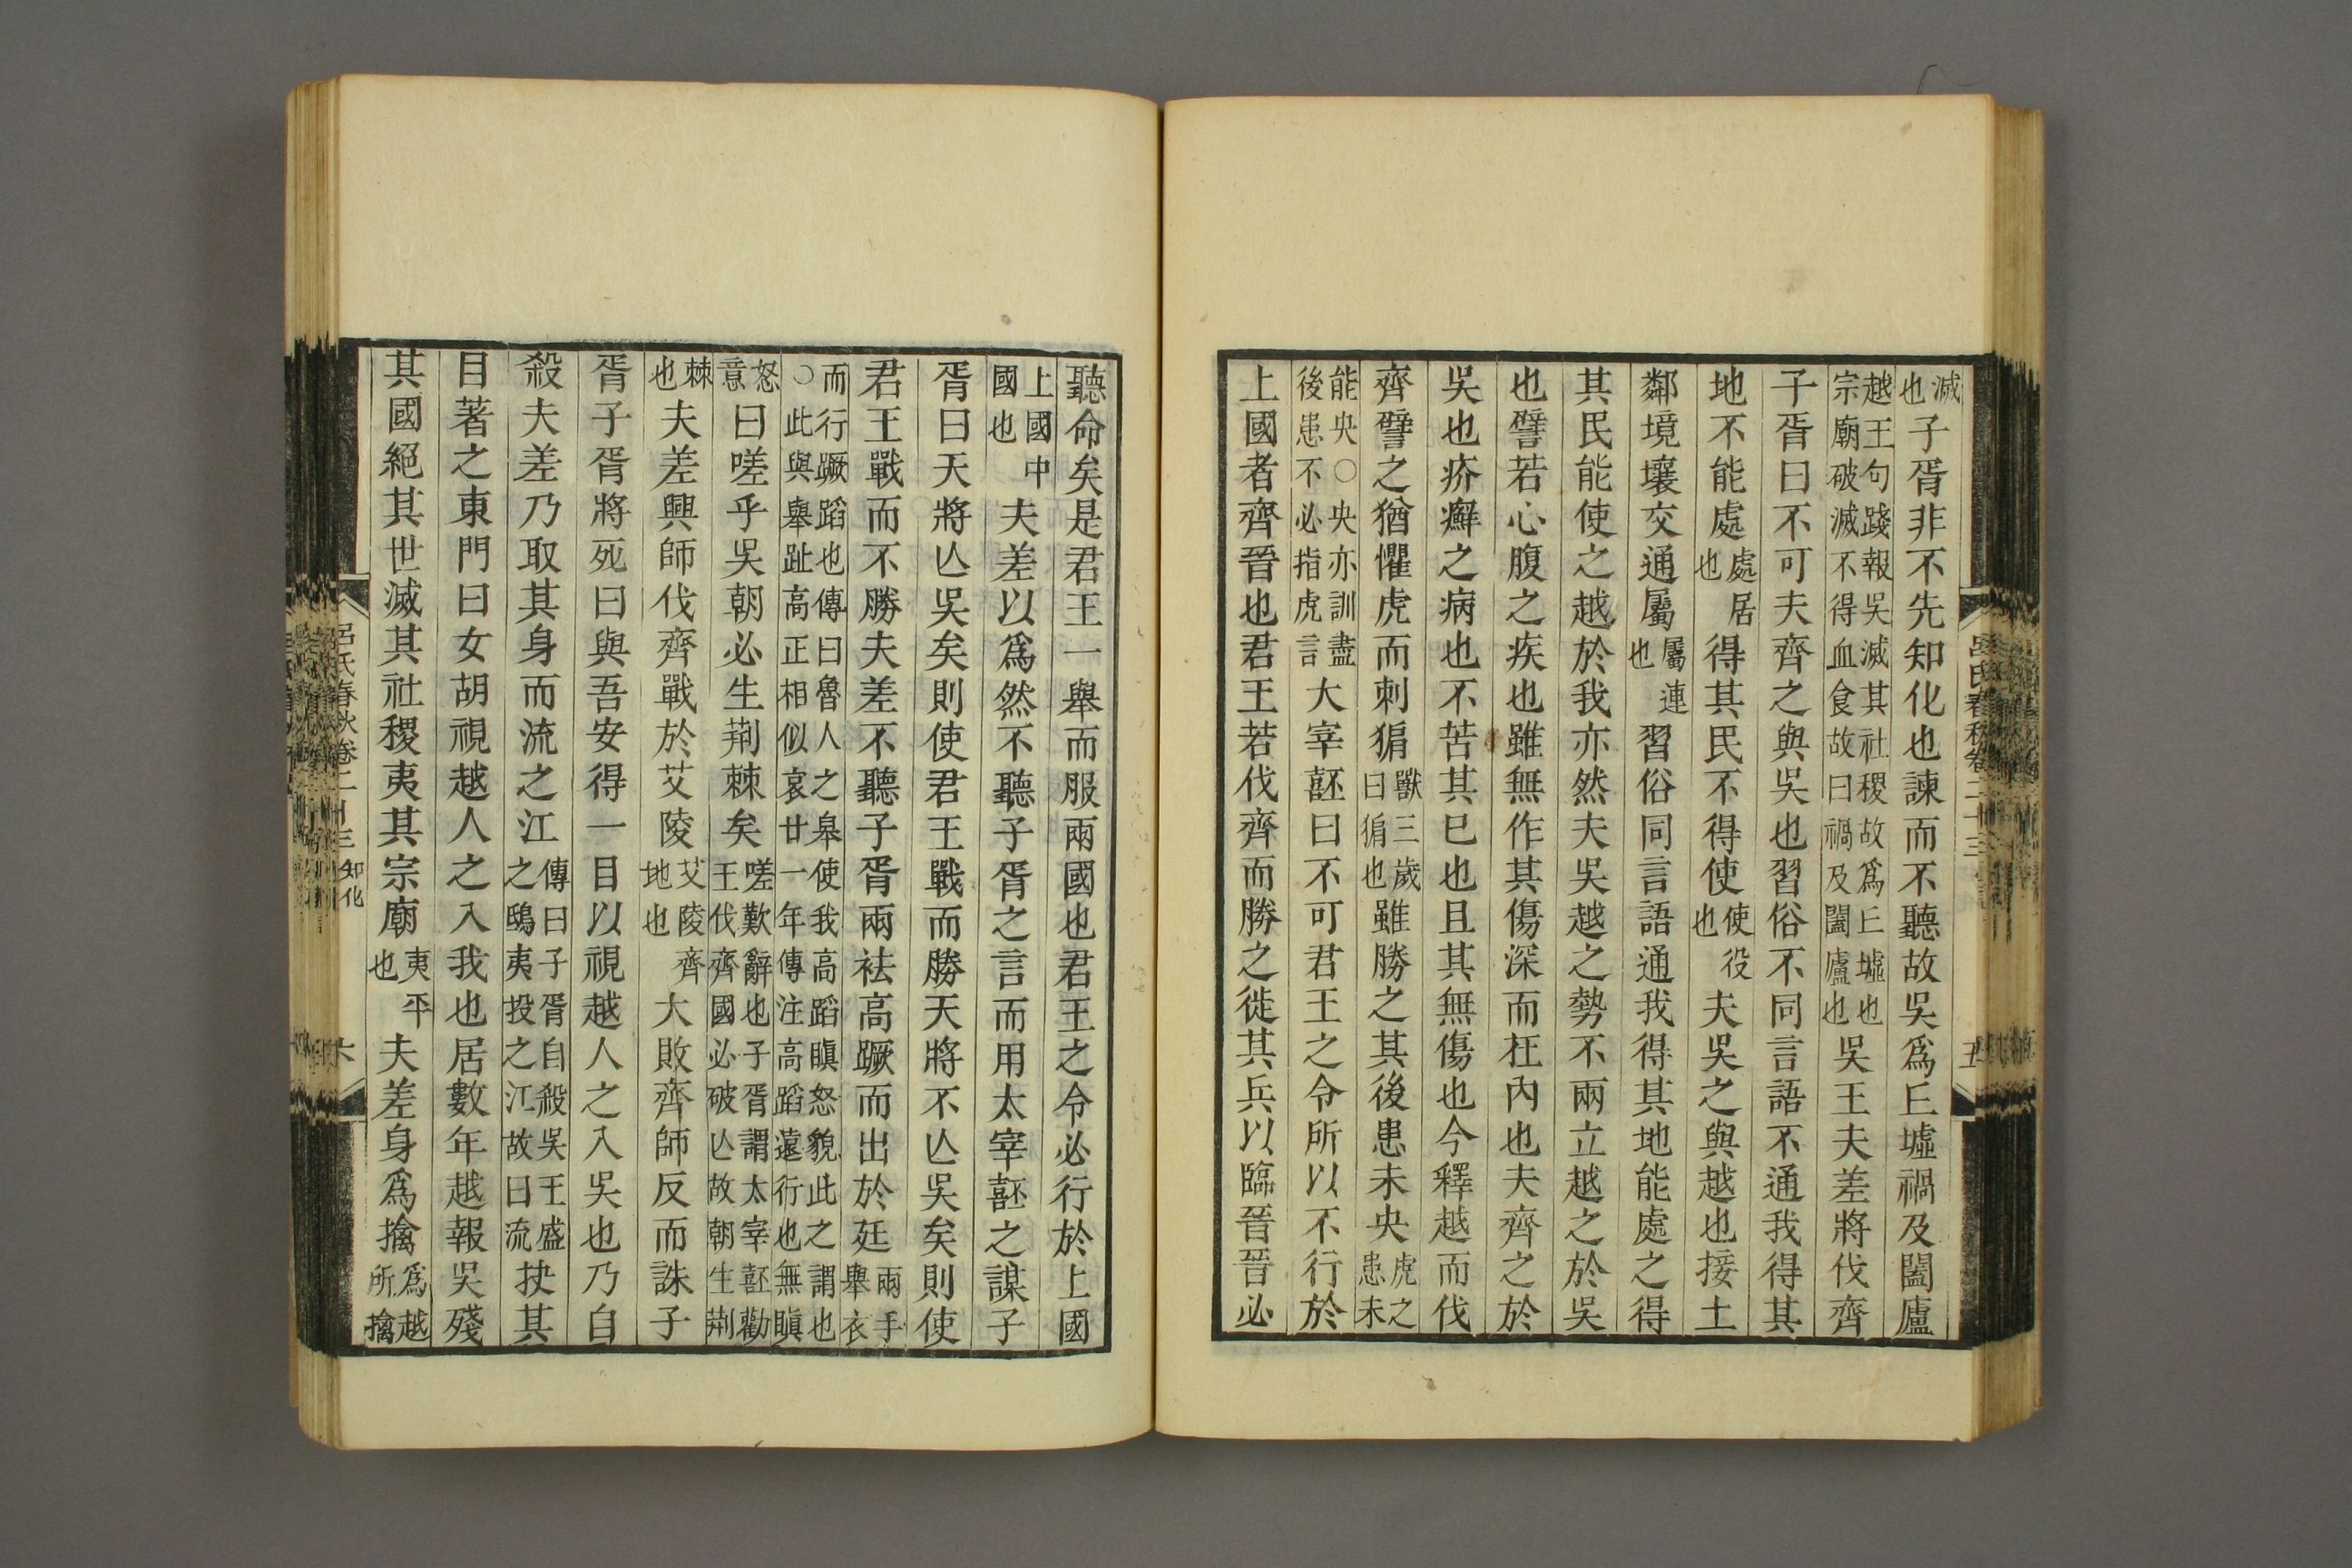 滅也子胥非不先知化也諫而不聽故吳爲丘墟禍及闔廬
越王句踐報吳滅其社稷故爲丘墟也宗廟破滅不得血食故曰禍及闔廬也吳王夫差將伐齊
子胥曰不可夫齊之與吳也習俗不同言語不通我得其
地不能處處居也得其民不得使使役也夫吳之與越也接土
鄰境壤交通屬屬連也習俗同言語通我得其地能處之得
其民能使之越於我亦然夫吳越之勢不兩立越之於吳
也譬若心腹之疾也雖無作其傷深而在內也夫齊之於
吳也疥癬之病也不苦其已也且其無傷也今釋越而伐
齊譬之猶懼虎而刺猏獸三歲曰猏也雖勝之其後患未央虎之患未
能央○央亦訓盡後患不必指虎言大宰嚭曰不可君王之令所以不行於
上國者齊晉也君王若伐齊而勝之徙其兵以臨晉晉必
呂氏春秋卷二十三
五
聽命矣是君王一舉而服兩國也君王之令必行於上國
上國中國也夫差以爲然不聽子胥之言而用太宰嚭之謀子
胥曰天將亾吳矣則使君王戰而勝天將不亾吳矣則使
君王戰而不勝夫差不聽子胥兩袪高蹶而出於廷兩手舉衣
而行蹶蹈也傳曰魯人之皋使我高蹈瞋怒貌此之謂也○此與舉趾高正相似哀廿一年傳注高蹈遠行也無瞋
怒意曰嗟乎吳朝必生荆棘矣嗟歎辭也子胥謂太宰嚭勸王伐齊國必破亾故朝生荆
棘也夫差興師伐齊戰於艾陵艾陵齊地也大敗齊師反而誅子
胥子胥將死曰與吾安得一目以視越人之入吳也乃自
殺夫差乃取其身而流之江傳曰子胥自殺吳王盛之鴟夷投之江故曰流抉其
目著之東門曰女胡視越人之入我也居數年越報吳殘
其國絕其世滅其社稷夷其宗廟夷平也夫差身爲擒爲越所擒
呂氏春秋卷二十三 知化
六